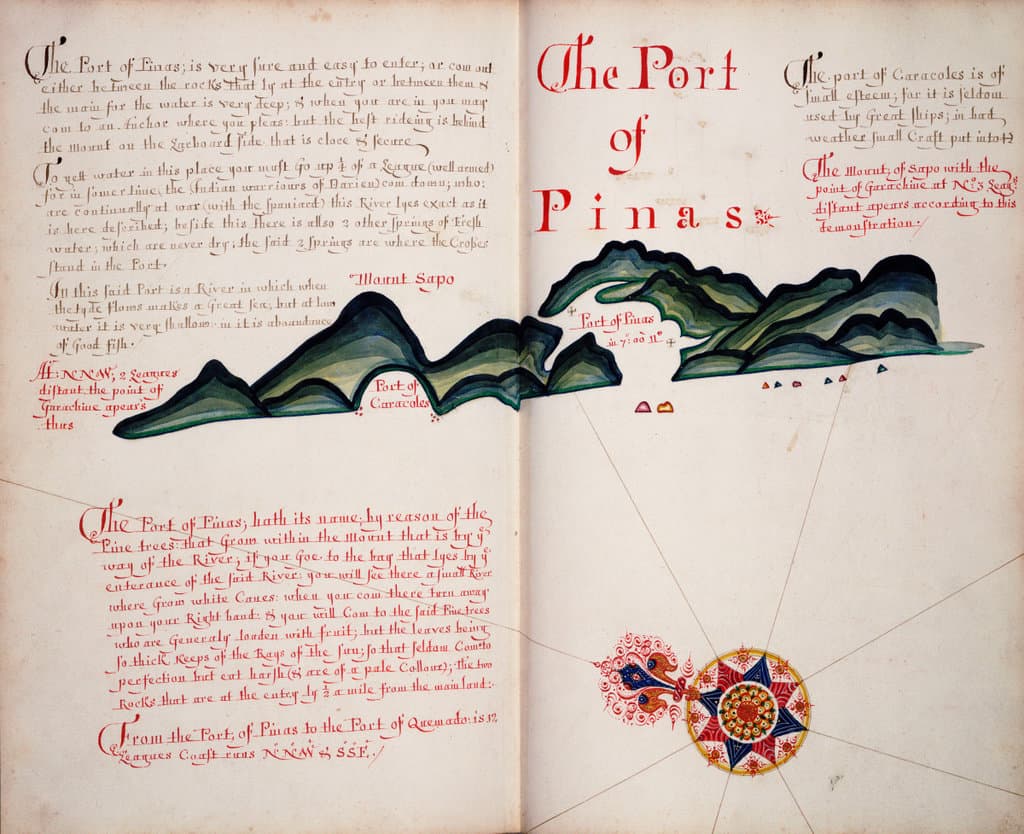 The Port of Pinas; is very sure and easy to enter; or com out
either between the rocks that ly at the entry or between them &
the main for the water is very deep; & when you are in you may
com to an Anchor where you pleas: but the best rideing is behind
the mount on the Larboard side that is close & secure
To gett water in this place you must Go up ¼ of a League (well armed)
for in somer time, the Indian warriours of Darien) com down; who:
are continually at war (with the spaniard) this River lyes exact as it
is here described; beside this there is allso 2 other springs of Fresh
water; which are never dry; the said 2 springs are where the Crosses
stand in the Port.
In this said Port is a River in which when
the tyde flows makes a Great sea; but at low
water it is very shallow: in it is aboundance
of Good fish.
At: NNW, 2 Leagues
distant the point of
Garachine apears
thus
Mount Sapo
Port of
Caracoles
The Port
of
Pinas
The port of Caracoles is of
small esteem; for it is seldom
used by Great ships; in bad
weather small Craft put into it
The Mount; of Sapo with the
point of Garachine at No: 5 Leags
distant apears according to this
demonstration.
Port of Pinas
in 7: 00 No
The Port of Pinas; hath its name; by reason of the
Pine trees: that Grow within the Mount that is by ye
way of the River; if you Goe to the bay that lyes by ye
enterance of the said River: you will see there a small River
where Grow white Canes: when you com there turn away
upon your Right hand: & you will Com to the said Pine trees
who are Generaly loaden with fruit; but the leaves being
so thick keeps of the Rays of the sun; so that seldom Com to
perfection but eat harsh (& are of a pale Collour); The two
Rocks that are at the entry ly ½ a mile from the main land:
From the Port; of Pinas to the Port of Quemado: is 12
Leagues Coast runs NNW & SSE.